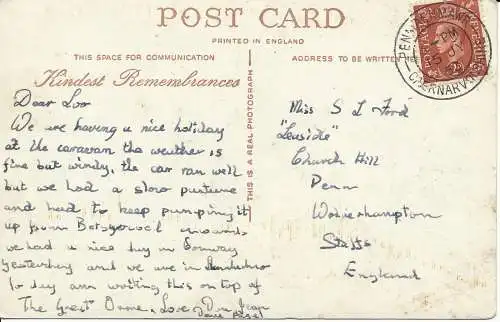 POST CARD
PRINTED IN ENGLAND
THIS SPACE FOR COMMUNICATION
ADDRESS TO BE WRITTEN
Kindest Remembrances
THIS IS A REAL PHOTOGRAPH
PENMAENMAWR
PM
CAERNARVON
Dear Loo
We are having a nice holiday
at the caravan the weather is
fine but windy, the car ran well
but we had a slow puncture
and had to keep pumping it
up from Betsycoed onwards,
we had a nice day in Conway
yesterday and we are in Llandudno
to day am writing this on top of
The Great Orme, Love Jean
Dave
Miss S L Ford
"Leaside"
Church Hill
Penn
Wolverhampton
Staffs
England